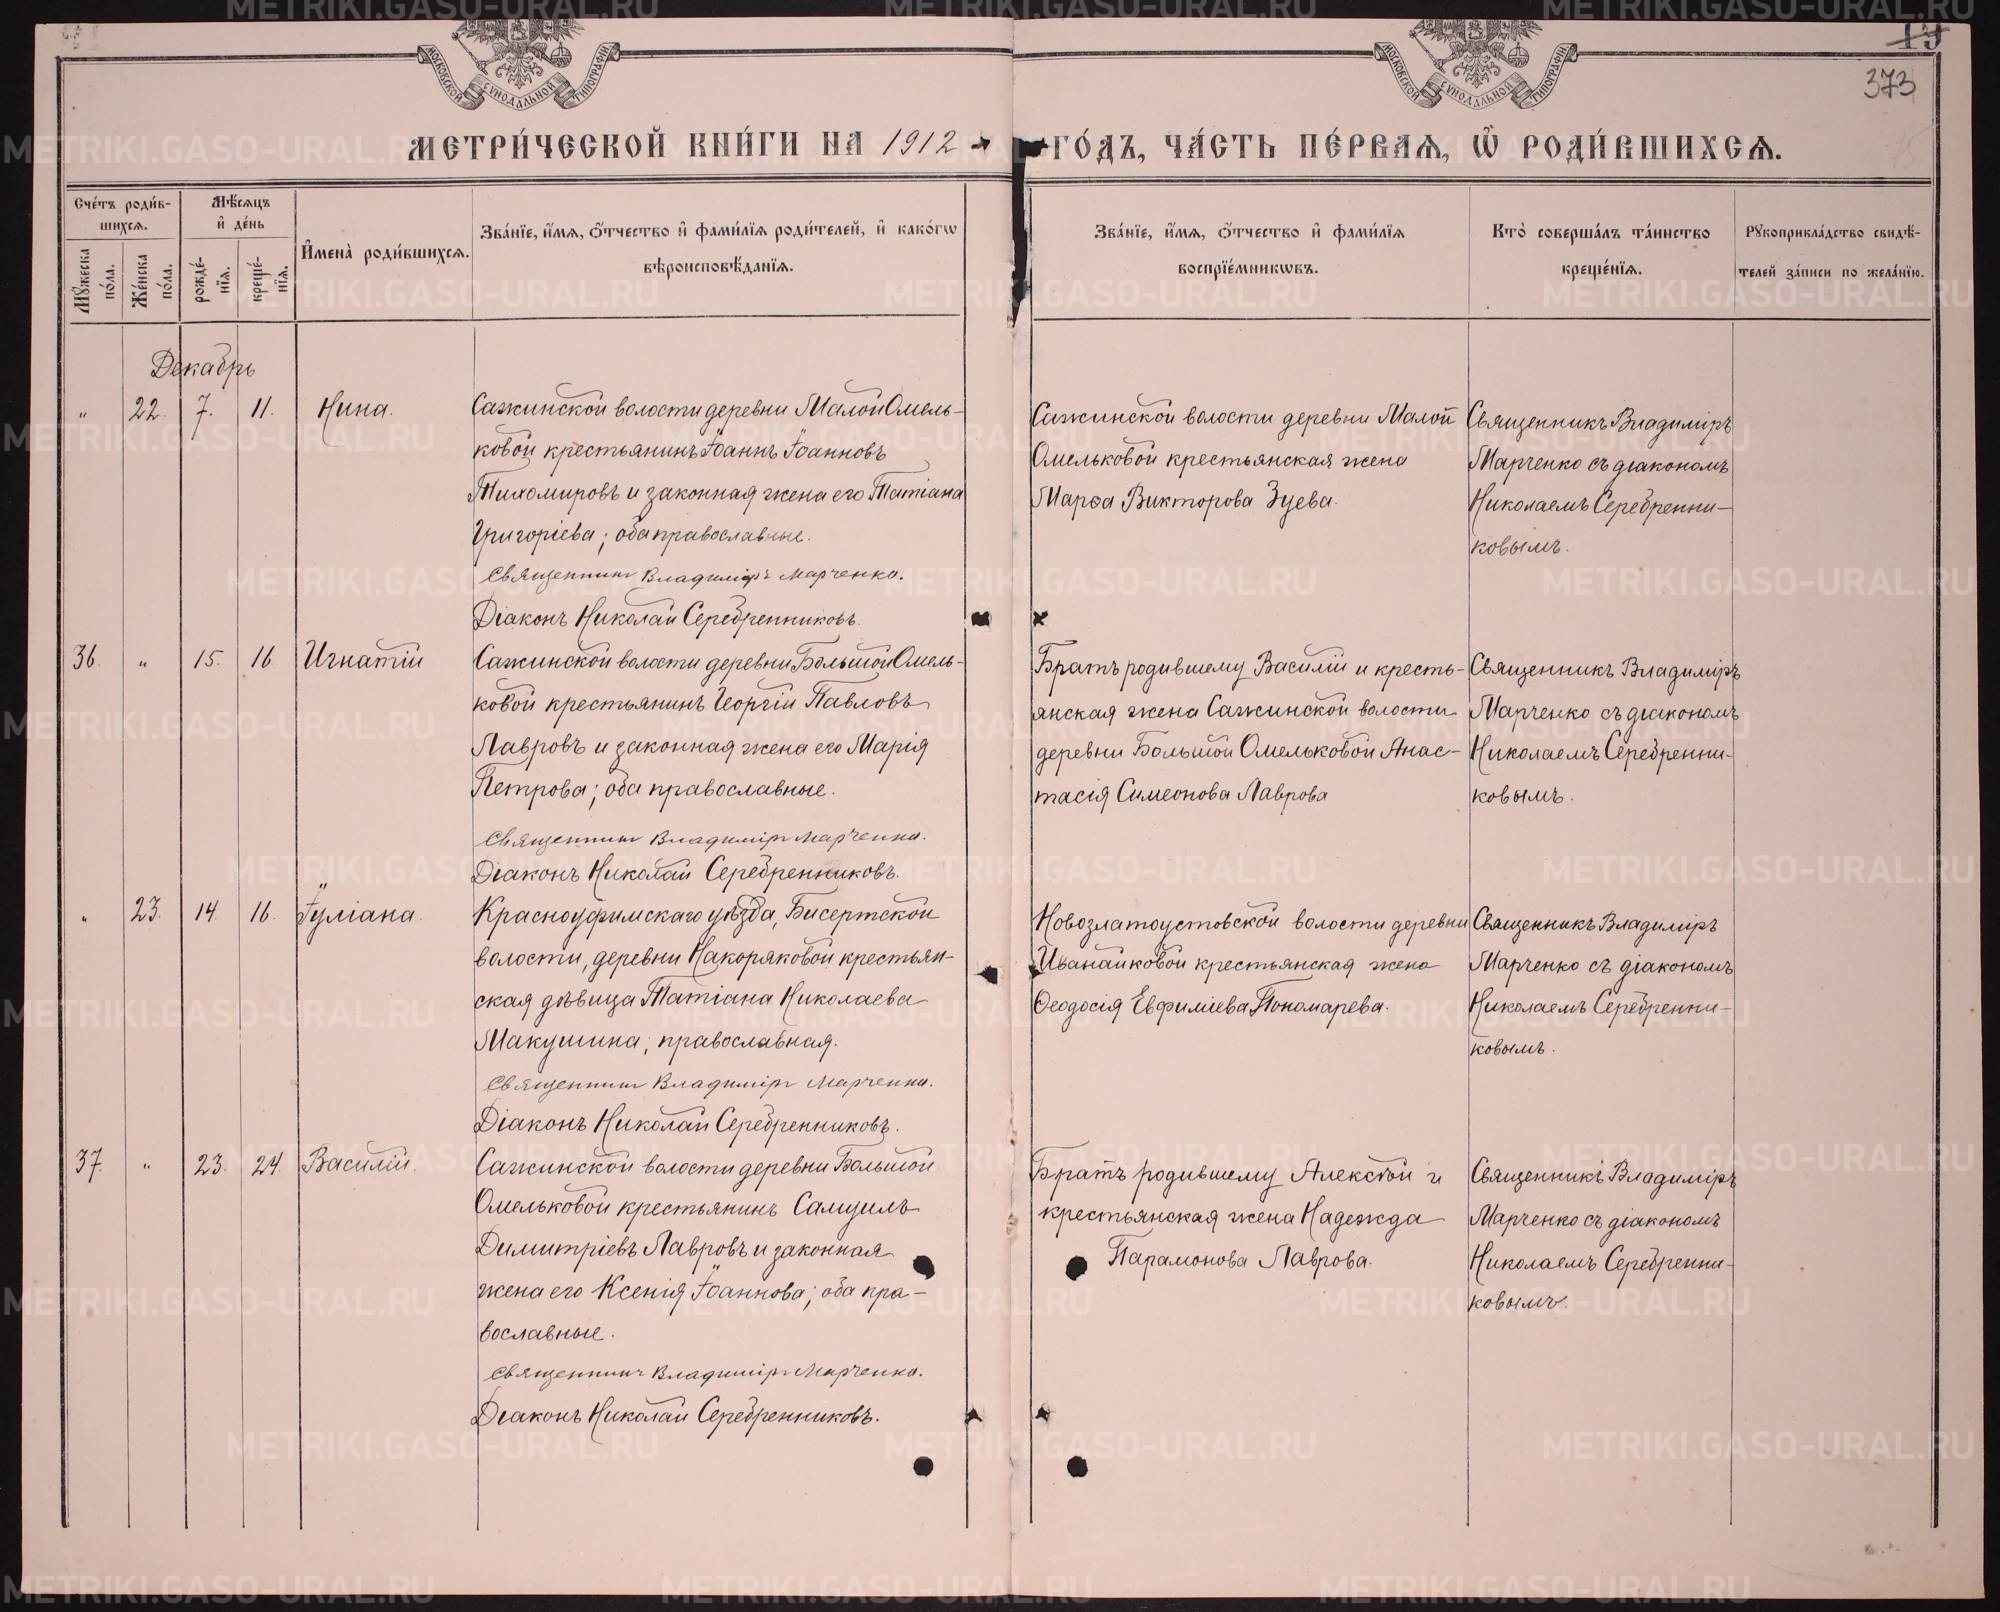 МОСКОВСКОЙ СѴНОДАЛЬНОЙ ТИПОГРАФІИ
МОСКОВСКОЙ СѴНОДАЛЬНОЙ ТИПОГРАФІИ
373
МЕТРИ́ЧЕСКОЙ КНИ́ГИ НА 1912 ГО́ДЪ, ЧА́СТЬ ПЕ́РВАѦ, Ѡ҆ РОДИ́ВШИХСѦ.
Сче́тъ роди́в-
шихсѧ.
Мꙋжеска по́ла.
Же́нска по́ла.
Мѣ́сѧцъ
и҆ де́нь
рожде́-нїѧ.
креще́-нїѧ.
И҆мена̀ роди́вшихсѧ.
Зва́нїе, и҆́мѧ, ѻ҆́тчество и҆ фами́лїѧ роди́телей, и҆ како́гѡ
вѣроисповѣ́данїѧ.
Зва́нїе, и҆́мѧ, ѻ҆́тчество и҆ фами́лїѧ
воспрїе́мникѡвъ.
Кто̀ соверша́лъ та́инство
креще́нїѧ.
Рꙋкоприкла́дство свидѣ́-
телей за́писи по жела́нїю.
Декабрь
" 22. 7. 11. Нина.
Сажинской волости деревни Малой Омель-
ковой крестьянинъ Іоаннъ Іоанновъ
Тихомировъ и законная жена его Татіана
Григоріева; оба православные.
Священникъ Владиміръ Марченко.
Діаконъ Николай Серебренниковъ.
Сажинской волости деревни Малой
Омельковой крестьянская жена
Марѳа Викторова Зуева.
Священникъ Владиміръ
Марченко съ діакономъ
Николаемъ Серебренни-
ковымъ.
36. " 15. 16 Игнатій
Сажинской волости деревни Большой Омель-
ковой крестьянинъ Георгій Павловъ
Лавровъ и законная жена его Марія
Петрова; оба православные.
Священникъ Владиміръ Марченко.
Діаконъ Николай Серебренниковъ.
Братъ родившему Василій и кресть-
янская жена Сажинской волости
деревни Большой Омельковой Анас-
тасія Симеонова Лаврова
Священникъ Владиміръ
Марченко съ діакономъ
Николаемъ Серебренни-
ковымъ.
" 23. 14. 16. Іуліана.
Красноуфимскаго уѣзда, Бисертской
волости, деревни Накоряковой крестьян-
ская дѣвица Татіана Николаева
Макушина; православная.
Священникъ Владиміръ Марченко.
Діаконъ Николай Серебренниковъ.
Новозлатоустовской волости деревни
Иванайковой крестьянская жена
Ѳеодосія Евфиміева Пономарева.
Священникъ Владиміръ
Марченко съ діакономъ
Николаемъ Серебренни-
ковымъ.
37. " 23. 24. Василій.
Сажинской волости деревни Большой
Омельковой крестьянинъ Самуилъ
Димитріевъ Лавровъ и законная
жена его Ксенія Іоаннова; оба пра-
вославные.
Священникъ Владиміръ Марченко.
Діаконъ Николай Серебренниковъ.
Братъ родившему Алексѣй и
крестьянская жена Надежда
Парамонова Лаврова.
Священникъ Владиміръ
Марченко съ діакономъ
Николаемъ Серебренни-
ковымъ.
METRIKI.GASO-URAL.RU